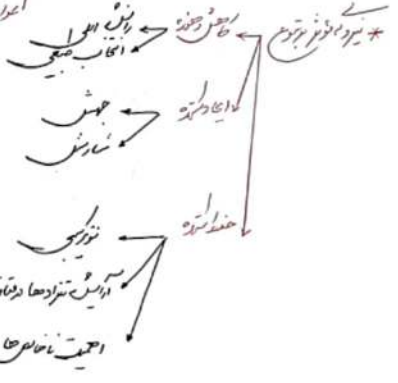 * نیروهای مؤثر بر تنوع
کاهش دهنده
رانش اللی
انتخاب طبیعی
ایجاد کننده
جهش
شارش
حفظ کننده
نوترکیبی
آرایش تترادها در متا
اهمیت ناخالص ها